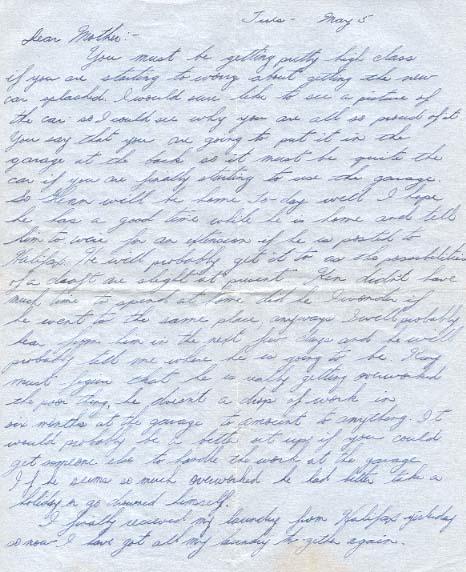 Tues - May 5
Dear Mother:-
You must be getting pretty high class
if you are starting to worry about getting the new
car splashed. I would sure like to see a picture of
the car so I would see why you are all so proud of it.
You say that you are going to put it in the
garage at the back so it must be quite the
car if you are finally starting to use the garage.
So will be home to-day well I hope
he has a good time while he is home and tell
him to wire for an extension if he is posted to
Halifax. He will probably get it to as the possibilities
of a draft are slight at present. Ken didn't have
much time to spend at home did he I wonder if
he went to the same place, anyways I will probably
hear from him in the next few days and he will
probably tell me where he is going to be.
must figure that he is really getting overworked
the poor thing, he doesnt a drop of work in
six months at the garage to amount to anything. It
would probably be a better set up if you could
get someone else to handle the work at the garage.
If he seems so much overworked he had better take a
holiday or go himself.
I finally received my laundry from Halifax yesterday
so now I have got all my laundry to gether again.